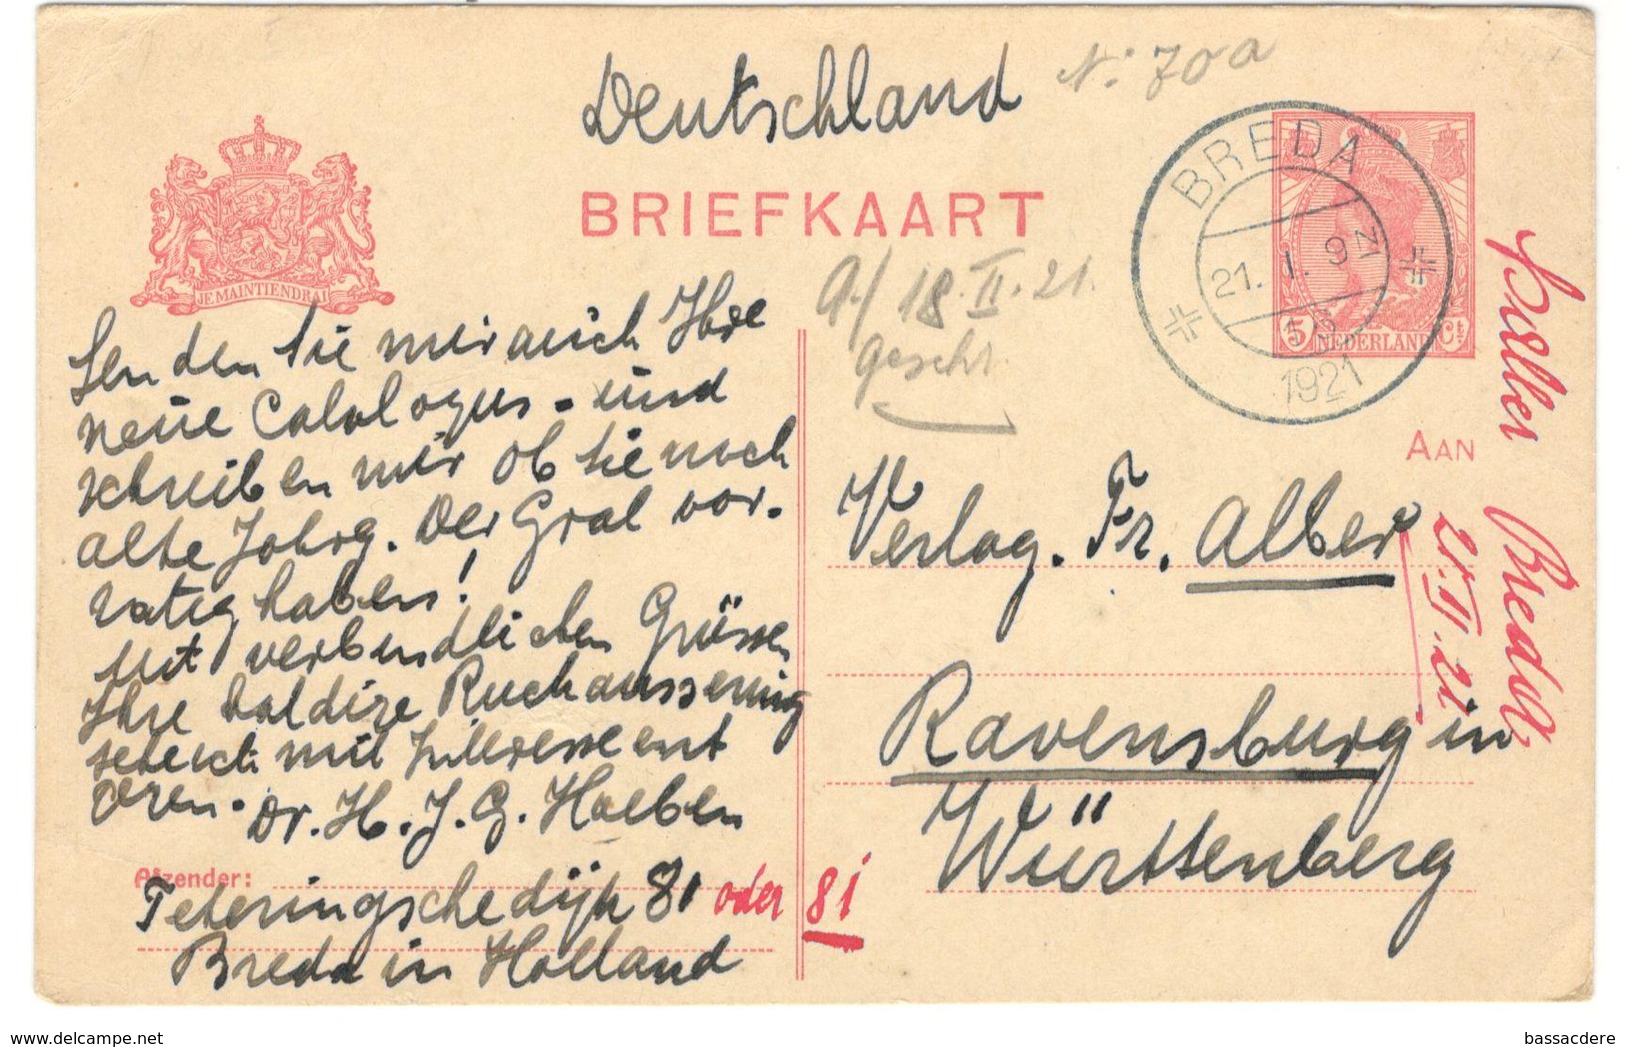 Deutschland
N: 70a
BRIEFKAART
JE MAINTIENDRAI
BREDA
21. 1. 9 N
1921
5 NEDERLAND Ct
18. II. 21.
AAN
Breda
21. II. 21
Senden Sie mir auch Ihre
neue Catalogus - und
schreiben mir ob Sie noch
alte Jahrg. Der Gral vor-
ratig haben!
Mit verbindlichen Grüssen
Ihre baldige
mit
Dr. H. J. G.
Afzender:
Teteringschedijk 81 oder 81
Breda in Holland
Verlag. Fr. Alber
Ravensburg in
Württenberg
www.delcampe.net
bassacdere